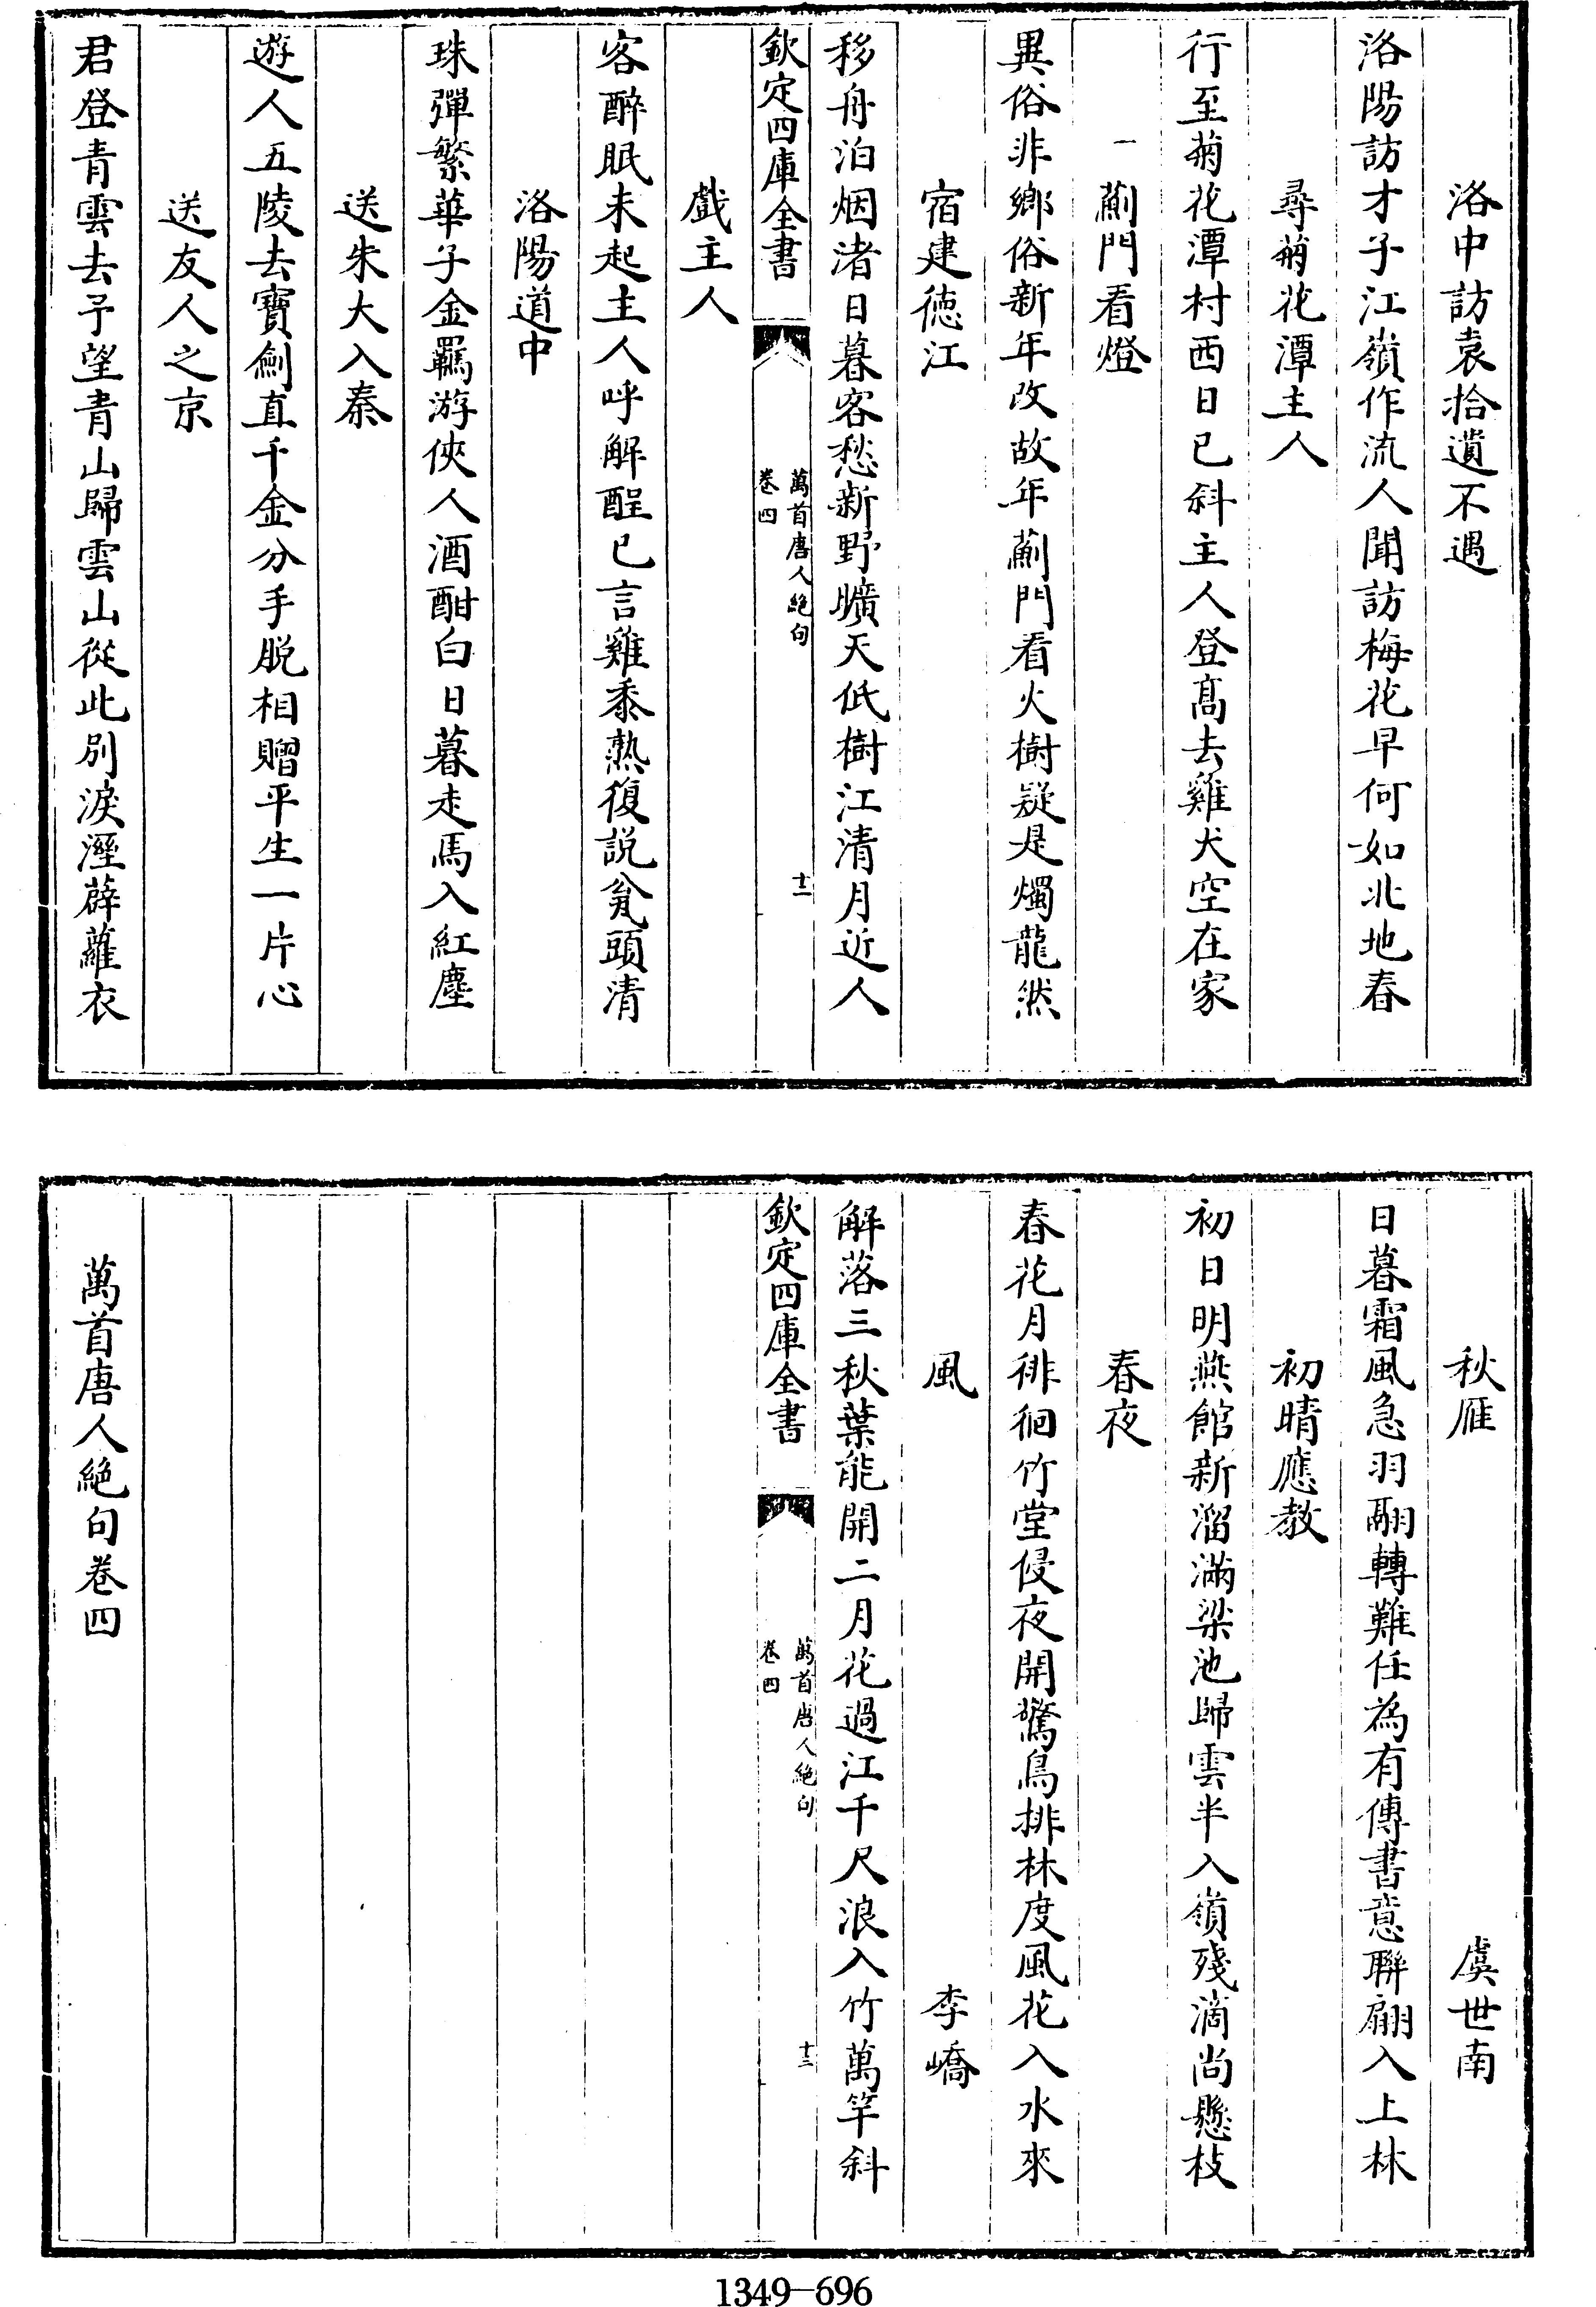 洛中訪袁拾遺不遇
洛陽訪才子江嶺作流人聞訪梅花早何如北地春
尋菊花潭主人
行至菊花潭村西日已斜主人登髙去雞犬空在家
薊門看燈
異俗非鄉俗新年改故年薊門看火樹疑是燭龍然
宿建徳江
移舟泊烟渚日暮客愁新野曠天低樹江清月近人
欽定四庫全書
萬首唐人絶句
卷四
十二
戲主人
客醉眠未起主人呼解酲已言雞黍熟復説瓮頭清
洛陽道中
珠彈繁華子金羈游俠人酒酣白日暮走馬入紅塵
送朱大入秦
遊人五陵去寶劍直千金分手脱相贈平生一片心
送友人之京
君登青雲去予望青山歸雲山從此別淚溼薜蘿衣
秋雁 虞世南
日暮霜風急羽翮轉難任為有傳書意聯翩入上林
初晴應教
初日明燕館新溜滿梁池歸雲半入嶺殘滴尚懸枝
春夜
春花月徘徊竹堂侵夜開驚鳥排林度風花入水來
風 李嶠
解落三秋葉能開二月花過江千尺浪入竹萬竿斜
欽定四庫全書
萬首唐人絶句
卷四
十三
萬首唐人絶句卷四
1349-696